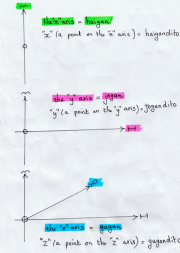 the "x" axis = haigan
"x" (a point on the "x" axis) = haigandito
the "y" axis = jogan
"y" (a point on the "y" axis) = jogandito
the "z" axis = gugan
"z" (a point on the "z" axis) = gugandito